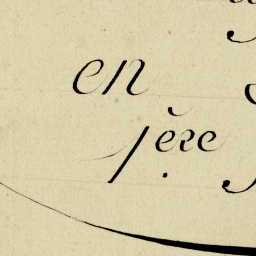 en
1ère